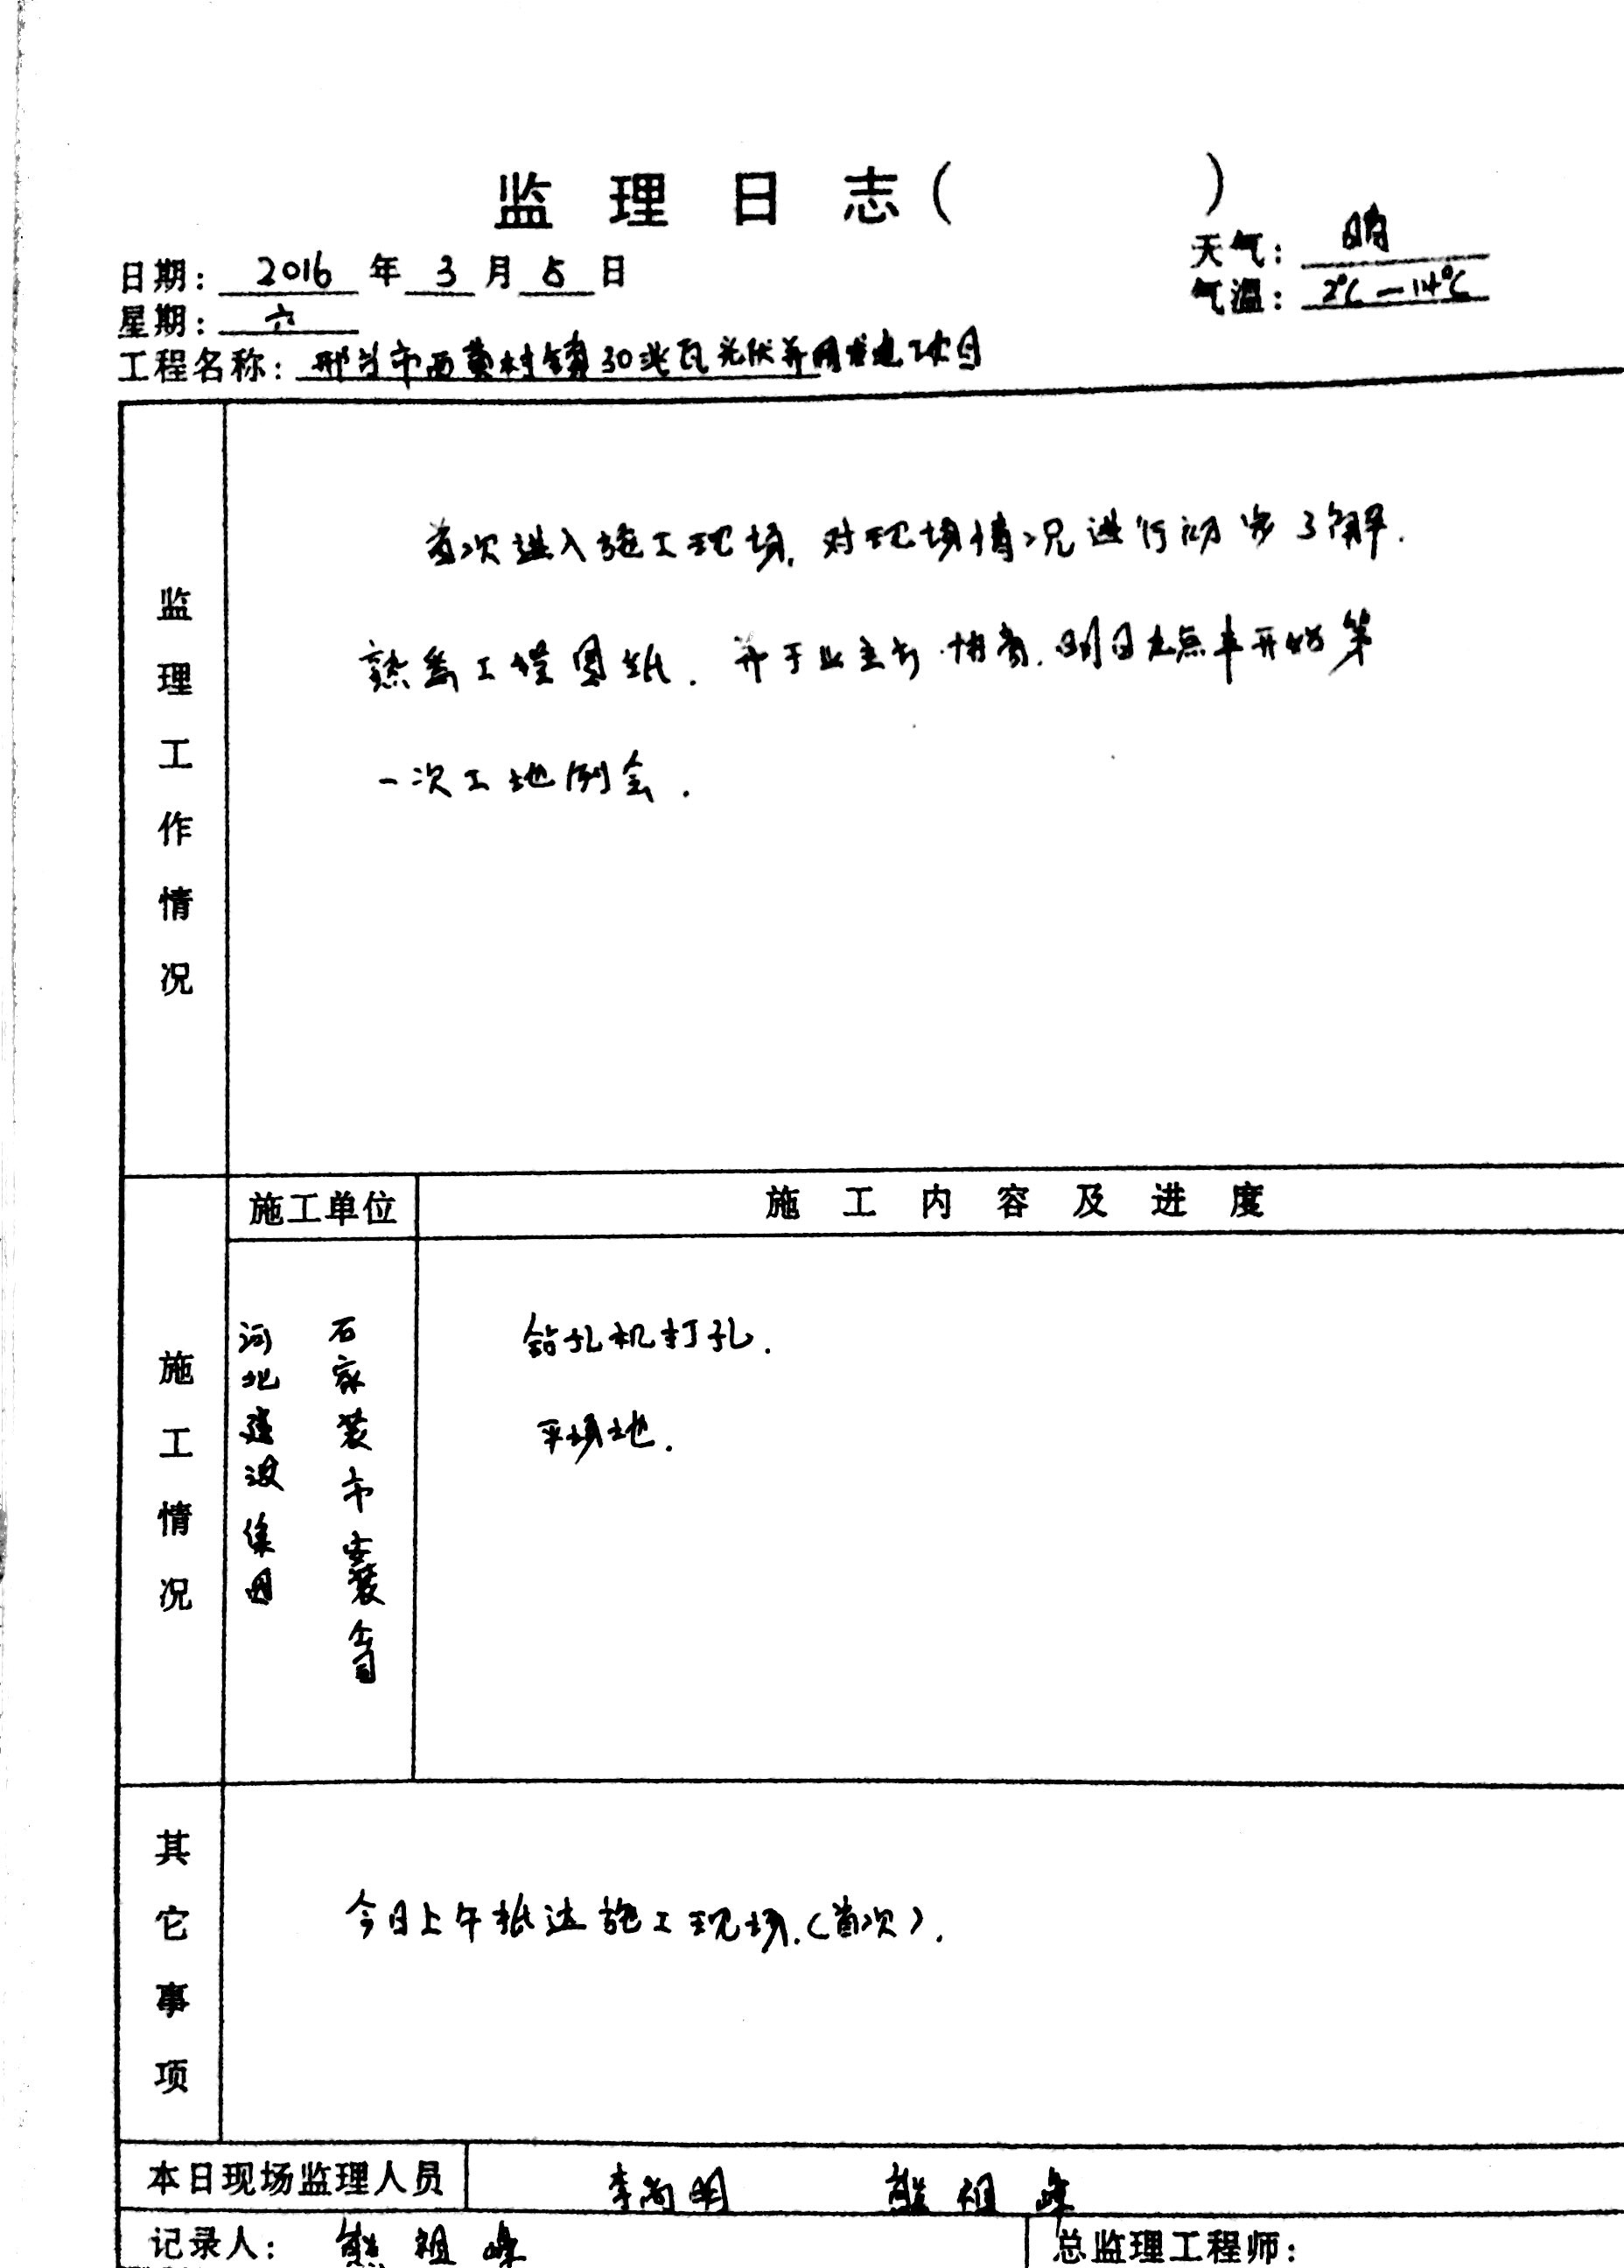 监理日志(    )
日期: 2016 年 3 月 5 日
天气: 晴
星期: 六
气温: 2℃—14℃
工程名称: 邢台市西黄村镇30兆瓦光伏并网发电项目
监理工作情况
首次进入施工现场,对现场情况进行初步了解.
熟悉工程图纸.并于业主方协商.明日九点半开始第
一次工地例会.
施工情况
施工单位
施工内容及进度
河北建设集团
石家装市安装公司
钻孔机打孔.
平场地.
其它事项
今日上午抵达施工现场.(首次).
本日现场监理人员
李尚明 熊祖峰
记录人: 熊祖峰
总监理工程师: